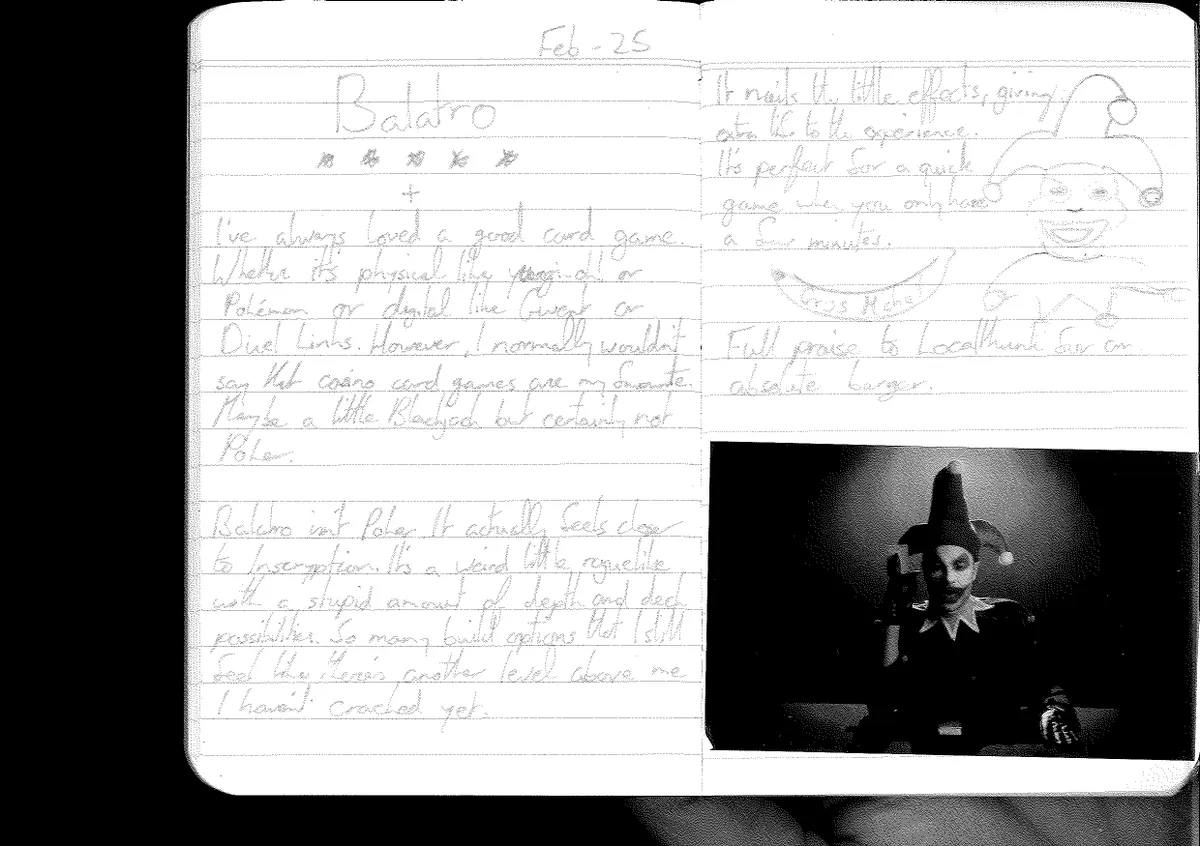 Feb - 25
Balatro
+
I've always loved a good card game.
Whether it's physical like yugioh or
Pokémon or digital like Gwent or
Duel Links. However, I normally wouldn't
say that casino card games are my favourite.
Maybe a little Blackjack but certainly not
Poker.
Balatro isn't Poker. It actually feels closer
to Inscryption. It's a weird little roguelike
with a stupid amount of depth and deck
possibilities. So many build options that I still
feel like there's another level above me
I haven't cracked yet.
It nails the little effects, giving
extra life to the experience.
It's perfect for a quick
game when you only have
a few minutes.
Gros Michel
Full praise to Localthunk for an
absolute banger.